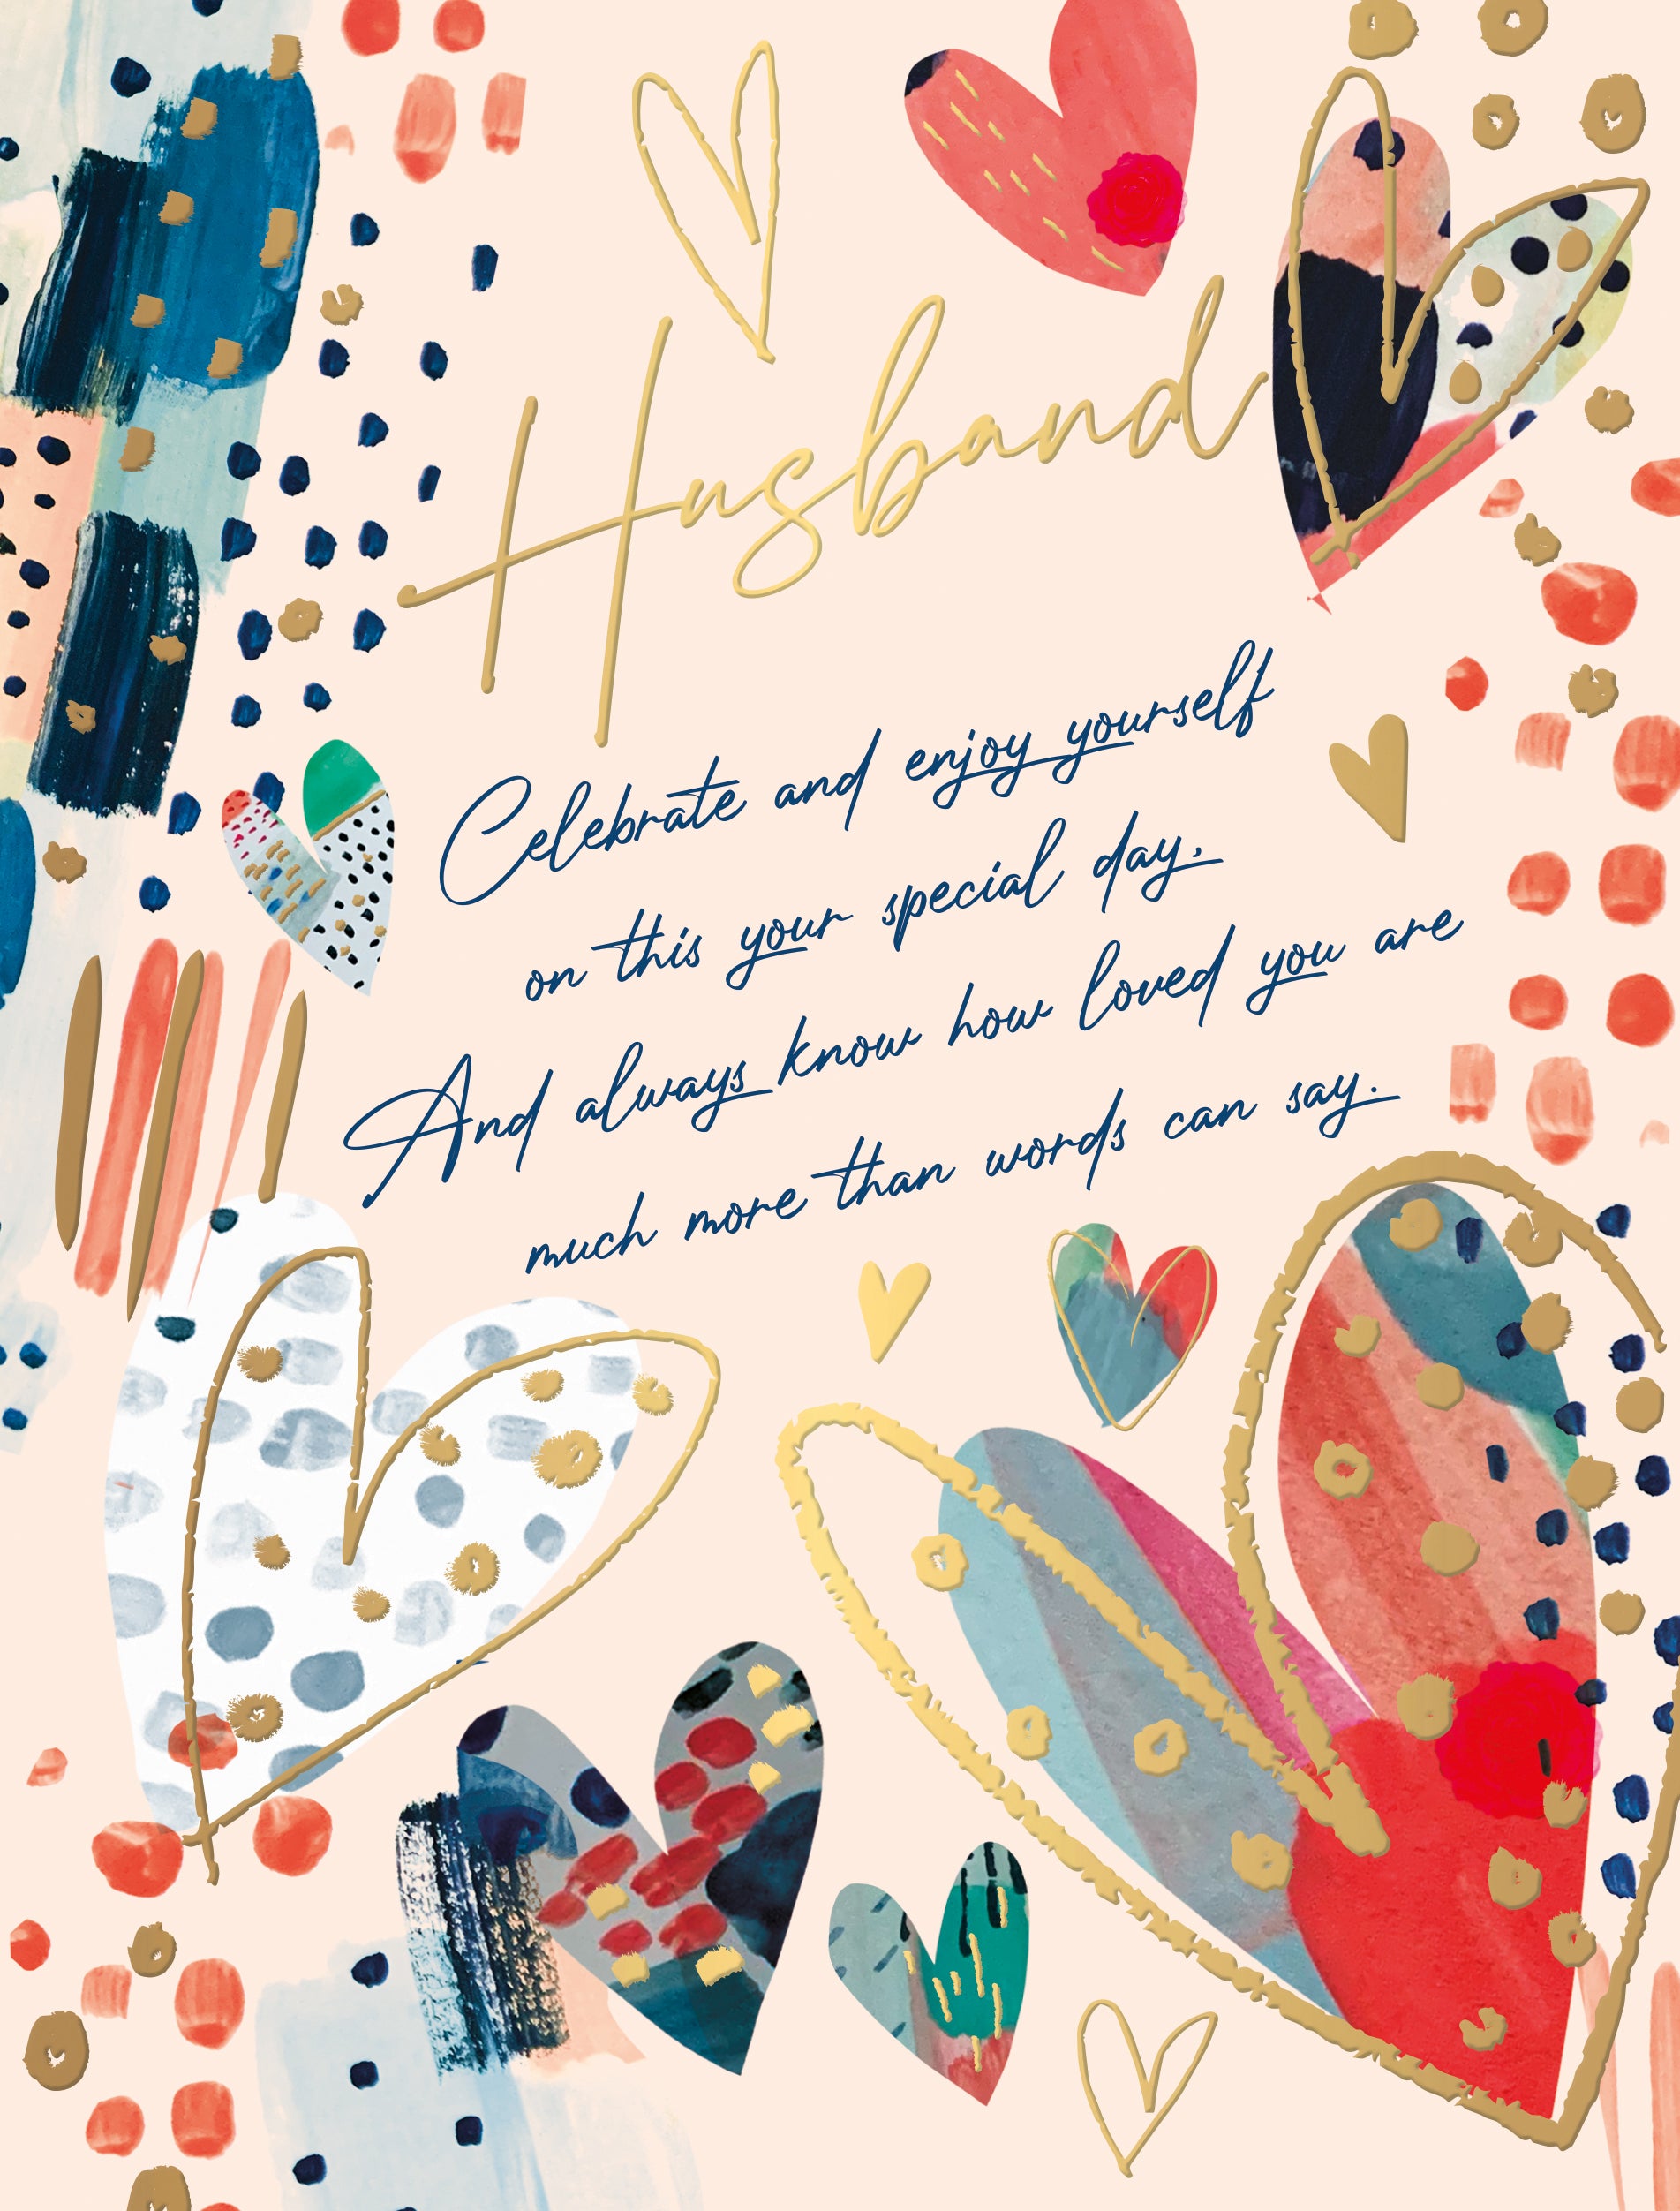 Husband
Celebrate and enjoy yourself
on this your special day,
And always know how loved you are
much more than words can say.